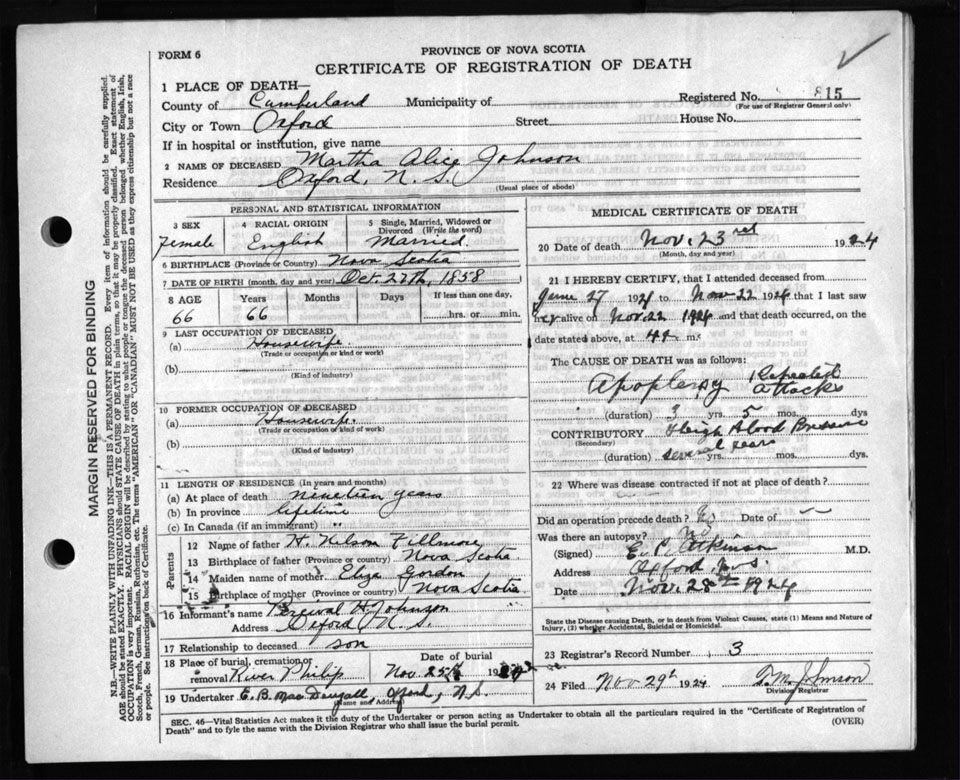 FORM 6
PROVINCE OF NOVA SCOTIA
CERTIFICATE OF REGISTRATION OF DEATH
1 PLACE OF DEATH—
County of Cumberland Municipality of Registered No. 815
(For use of Registrar General only)
City or Town Oxford Street House No.
If in hospital or institution, give name
2 NAME OF DECEASED Martha Alice Johnson
Residence Oxford, N. S.
(Usual place of abode)
PERSONAL AND STATISTICAL INFORMATION
3 SEX 4 RACIAL ORIGIN 5 Single, Married, Widowed or Divorced (Write the word)
Female English Married
6 BIRTHPLACE (Province or Country) Nova Scotia
7 DATE OF BIRTH (month, day and year) Oct. 27th, 1858
8 AGE Years Months Days If less than one day,
66 66 hrs. or min.
9 LAST OCCUPATION OF DECEASED
(a) Housewife.
(Trade or occupation or kind of work)
(b)
(Kind of industry)
10 FORMER OCCUPATION OF DECEASED
(a) Housewife.
(Trade or occupation or kind of work)
(b)
(Kind of industry)
11 LENGTH OF RESIDENCE (In years and months)
(a) At place of death nineteen years
(b) In province lifetime
(c) In Canada (if an immigrant) "
Parents
12 Name of father H. Nelson Fillmore
13 Birthplace of father (Province or Country) Nova Scotia
14 Maiden name of mother Eliza Gordon
15 Birthplace of mother (Province or Country) Nova Scotia
16 Informant's name Percival H. Johnson
Address Oxford N. S.
17 Relationship to deceased son
18 Place of burial, cremation or removal River Philip Date of burial Nov. 25th 1924
19 Undertaker E. B. MacDougall, Oxford, N. S.
(Name and Address)
MEDICAL CERTIFICATE OF DEATH
20 Date of death Nov. 23rd 1924
(Month, day and year)
21 I HEREBY CERTIFY, that I attended deceased from
June 27 1924 to Nov 22 1924 that I last saw
her alive on Nov. 22 1924 and that death occurred, on
date stated above, at m.
The CAUSE OF DEATH was as follows:
Apoplexy Repeated attacks
(duration) 3 yrs. 5 mos. dys
CONTRIBUTORY High Blood Pressure
(Secondary)
(duration) several years yrs. mos. dys.
22 Where was disease contracted if not at place of death?
Did an operation precede death? No Date of —
Was there an autopsy? No
(Signed) E. P. Atkinson M.D.
Address Oxford N.S.
Date Nov. 28th 1924
State the Disease causing Death, or in death from Violent Causes, state (1) Means and Nature of Injury, (2) whether Accidental, Suicidal or Homicidal.
23 Registrar's Record Number 3
24 Filed Nov 29th 1924
Division Registrar
SEC. 46—Vital Statistics Act makes it the duty of the Undertaker or person acting as Undertaker to obtain all the particulars required in the "Certificate of Registration of
Death" and to fyle the same with the Division Registrar who shall issue the burial permit. (OVER)
MARGIN RESERVED FOR BINDING
N.B.—WRITE PLAINLY WITH UNFADING INK—THIS IS A PERMANENT RECORD. Every item of information should be carefully supplied.
AGE should be stated EXACTLY. PHYSICIANS should STATE CAUSE OF DEATH in plain terms, so that it may be properly classified. Exact statement of
OCCUPATION is very important. RACIAL ORIGIN will be described by stating to what people or tongue the deceased person belonged whether English, Irish,
Scotch, French, German, Russian, Ruthenian, etc. The terms "AMERICAN" OR "CANADIAN" MUST NOT BE USED as they express citizenship but not a race
or people. See instructions on back of Certificate.